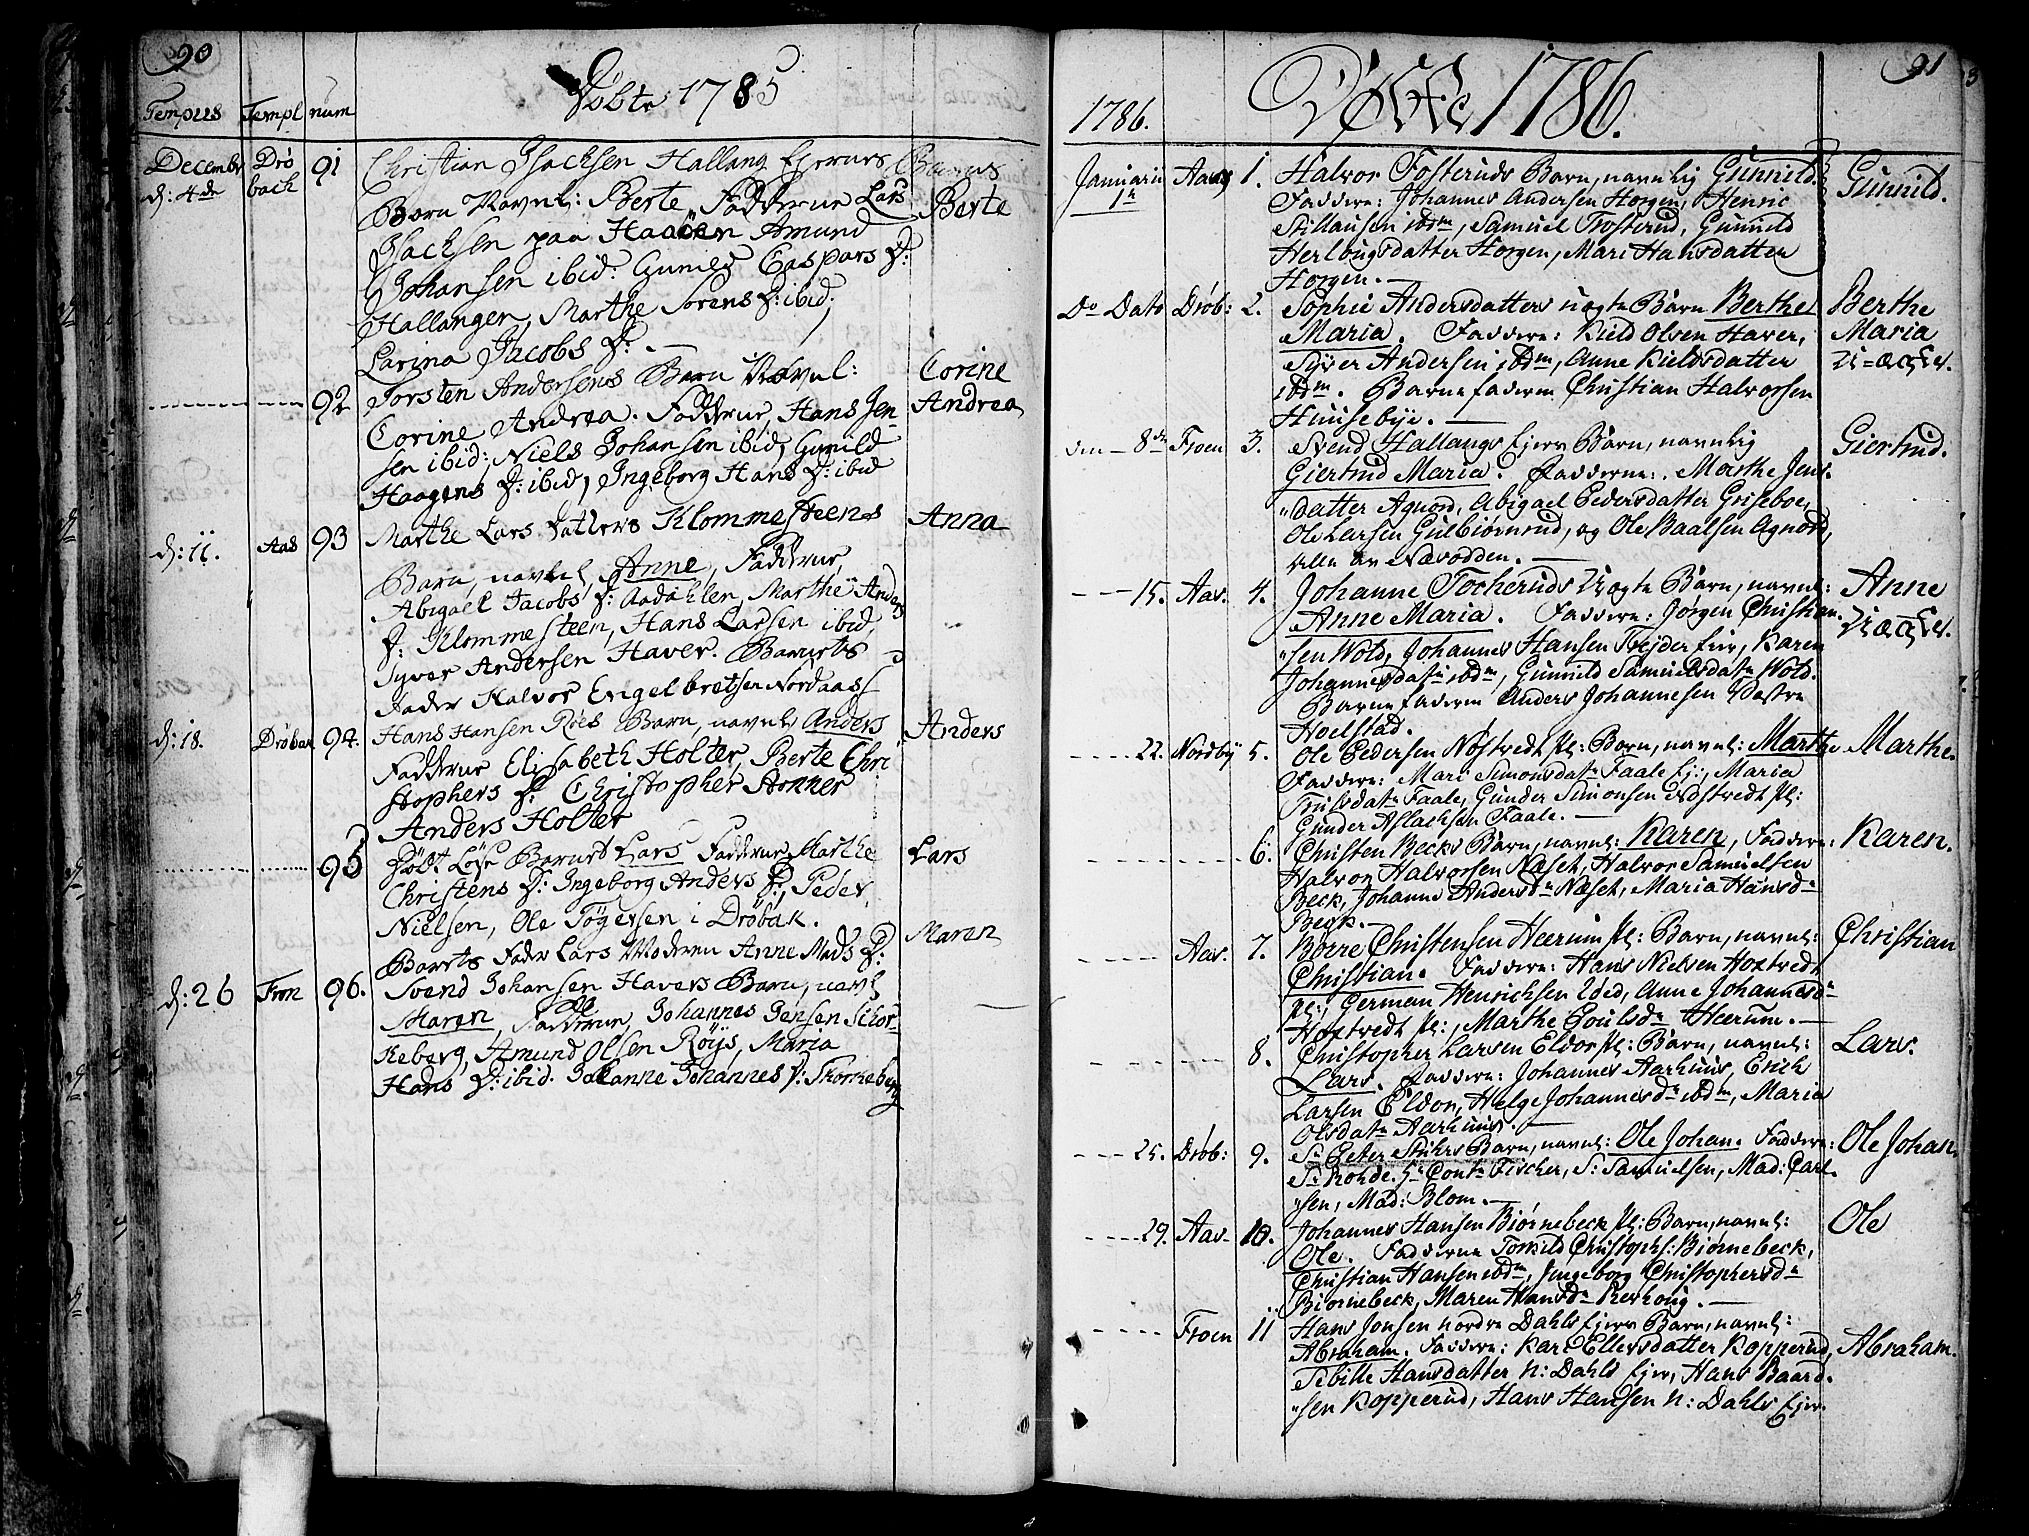 90
Døbte 1785
Tempus Templ num
December Drö 91 Christian Jsachsen Hallang Ejernes Barns
d: 4de bach Barn Navnl: Berte Fadderne Lars Berte
Jsachsen paa Haaöen Amund
Johansen ibid: Guneld Caspars D:
Hallangen, Marthe Sorens D: ibid,
Larina Jacobs D:
92 Torsten Andersens Barn Navnl: Corine
Corine Andrea. Fadderne, Hans Jen Andrea
sen ibid; Niels Johansen ibid, Gunild
Haagens D: ibid, Ingeborg Hans D: ibid
d: 11. Aas 93 Marthe Lars Datters Klommesteens Anna
Barn, navnl, Anne, Fadderne,
Abigael Jacobs D: Aadahlen, Marthe Anders
D: Klommesteen, Hans Larsen ibid,
Syver Andersen Haver. Barnets
Fader Halvor Engelbretsen Nordaas
d: 18. Dröbak 94. Hans Hansen Röes Barn, navnl, Anders Anders
Fadderne Elisabeth Holter, Berte Chri
stophers D: Christopher Honner
Anders Holter
95 Døbt Løse Barnet Lars Fadderne Marthe Lars
Christens D: Ingeborg Anders D:, Peder
Nielsen, Ole Tögersen i Dröbak.
Barets Fader Lars Moderen Anne Mads D: Maren
d: 26 Fron 96. Svend Johansen Havers Barn, navnl
Maren, Fadderne, Johannes Jensen Skor
keberg, Amund Olsen Röys, Maria
Hans D: ibid. Johanne Johannes D: Skorkeberg
91
1786. Døbte 1786.
Januarii Aaas 1. Halvor Fosteruds Barn, navnlig Gunnild. Gunnild.
1te Faddere: Johannes Andersen Horgen, Henric
Stillausen ibdm, Samuel Trosterud, Gunnild
Herlougsdatter Horgen, Mari Hansdatter
Horgen.
Do Dato Dröb: 2. Sophie Andersdatters uægte Barn Berthe Berthe
Maria. Faddere: Kield Olsen Haver, Maria
Syver Andersen ibdm, Anne Kieldsdatter U-ægte.
ibdm. Barnefaderen Christian Halvorsen
Huusebye.
den 8de Froen 3. Svend Hallangs Ejers Barn, navnlig Giertrud.
Giertrud Maria. Fadderne: Marthe Jens-
datter Agnord, Abigael Pedersdatter Griseboe,
Ole Larsen Gulbiörnrud, og Ole Baalsen Agnord,
alle av Næsodden.
15. Aas. 4. Johanne Tocheruds Uægte Barn, navnl: Anne
Anne Maria. Faddere: Jörgen Christian- Uægte.
sen Wold, Johannes Hansen Trejder Eier, Karen
Johannesdatr ibdm, Gunnild Samuelsdatr Wold.
Barnefaderen Anders Johannesen Vestre
Hoelstad.
22. Nordby 5. Ole Pedersen Nöstvedt Pl: Barn, navnl: Marthe Marthe.
Faddere: Mari Simonsdatr Faale Ej:, Maria
Truelsdatr Faale, Gunder Simonsen Nöstvedt Pl:
Gunder Aslachsen Faale.
6. Christen Becks Barn, navnl: Karen, Faddere: Karen.
Halvor Halvorsen Næset, Halvor Samuelsen
Beck, Johanne Andersdr Næset, Maria Hansdr
Beck.
Aas. 7. Börre Christensen Heerum Pl: Barn, navnl: Christian
Christian. Faddere: Hans Nielsen Hoxtvedt
Pl:, German Henrichsen Löed, Anne Johannesdr
Hoxtvedt Pl:, Marthe Poulsdr Heerum.
8. Christopher Larsen Eldor Pl: Barn, navnl: Lars.
Lars. Faddere: Johannes Aarhuus, Erich
Larsen Eldor, Helge Johannesdr ibdm, Maria
Olsdatr Aarhuus.
25. Dröb: 9. Sr Peter Stuhrs Barn, navnl: Ole Johan. Faddere: Ole Johan.
Sr Rohde. Hr Contr Fischer, S: Samuelsen, Mad: Carl-
sen, Mad: Blom.
29. Aas 10. Johannes Hansen Biörnebeck Pl: Barn, navnl: Ole
Ole. Fadderne Torkild Christophs: Biörnebeck,
Christian Hansen ibdm, Jngeborg Christophersdr
Biörnebeck, Maren Hansdr Kierkong.
Froen 11 Hans Jonsen nordre Dahls Ejers Barn, navnl:
Abraham. Faddere: Kari Ellersdatter Kopperud, Abraham.
Sibille Hansdatter N: Dahls Ejer, Hans Baard-
sen Kopperud, Hans Hansen N: Dahls Ejer.